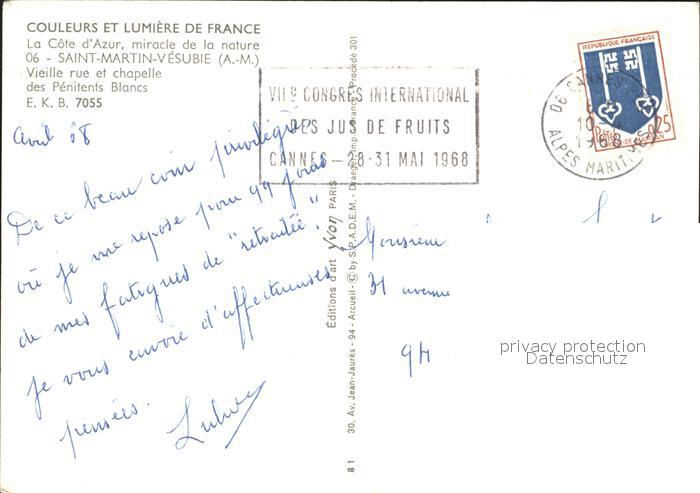 COULEURS ET LUMIÈRE DE FRANCE
La Côte d'Azur, miracle de la nature
06 - SAINT-MARTIN-VÉSUBIE (A.-M.)
Vieille rue et chapelle
des Pénitents Blancs
E. K. B. 7055
VIIe CONGRES INTERNATIONAL
DES JUS DE FRUITS
CANNES - 28-31 MAI 1968
REPUBLIQUE FRANÇAISE
0,25
06 CANNES
1968
ALPES MARITIMES
Avril 68
De ce beau coin privilégié
où je me repose pour 99 jours
de mes fatigues de "retraitée".
je vous envoie d'affectueuses
pensées.
Éditions d'art yvon PARIS
30, Av. Jean-Jaurès - 94 - Arcueil - © by S.P.A.D.E.M. - Draeger Imp. France - Procédé 301
81
Monsieur
31 avenue
94
privacy protection
Datenschutz